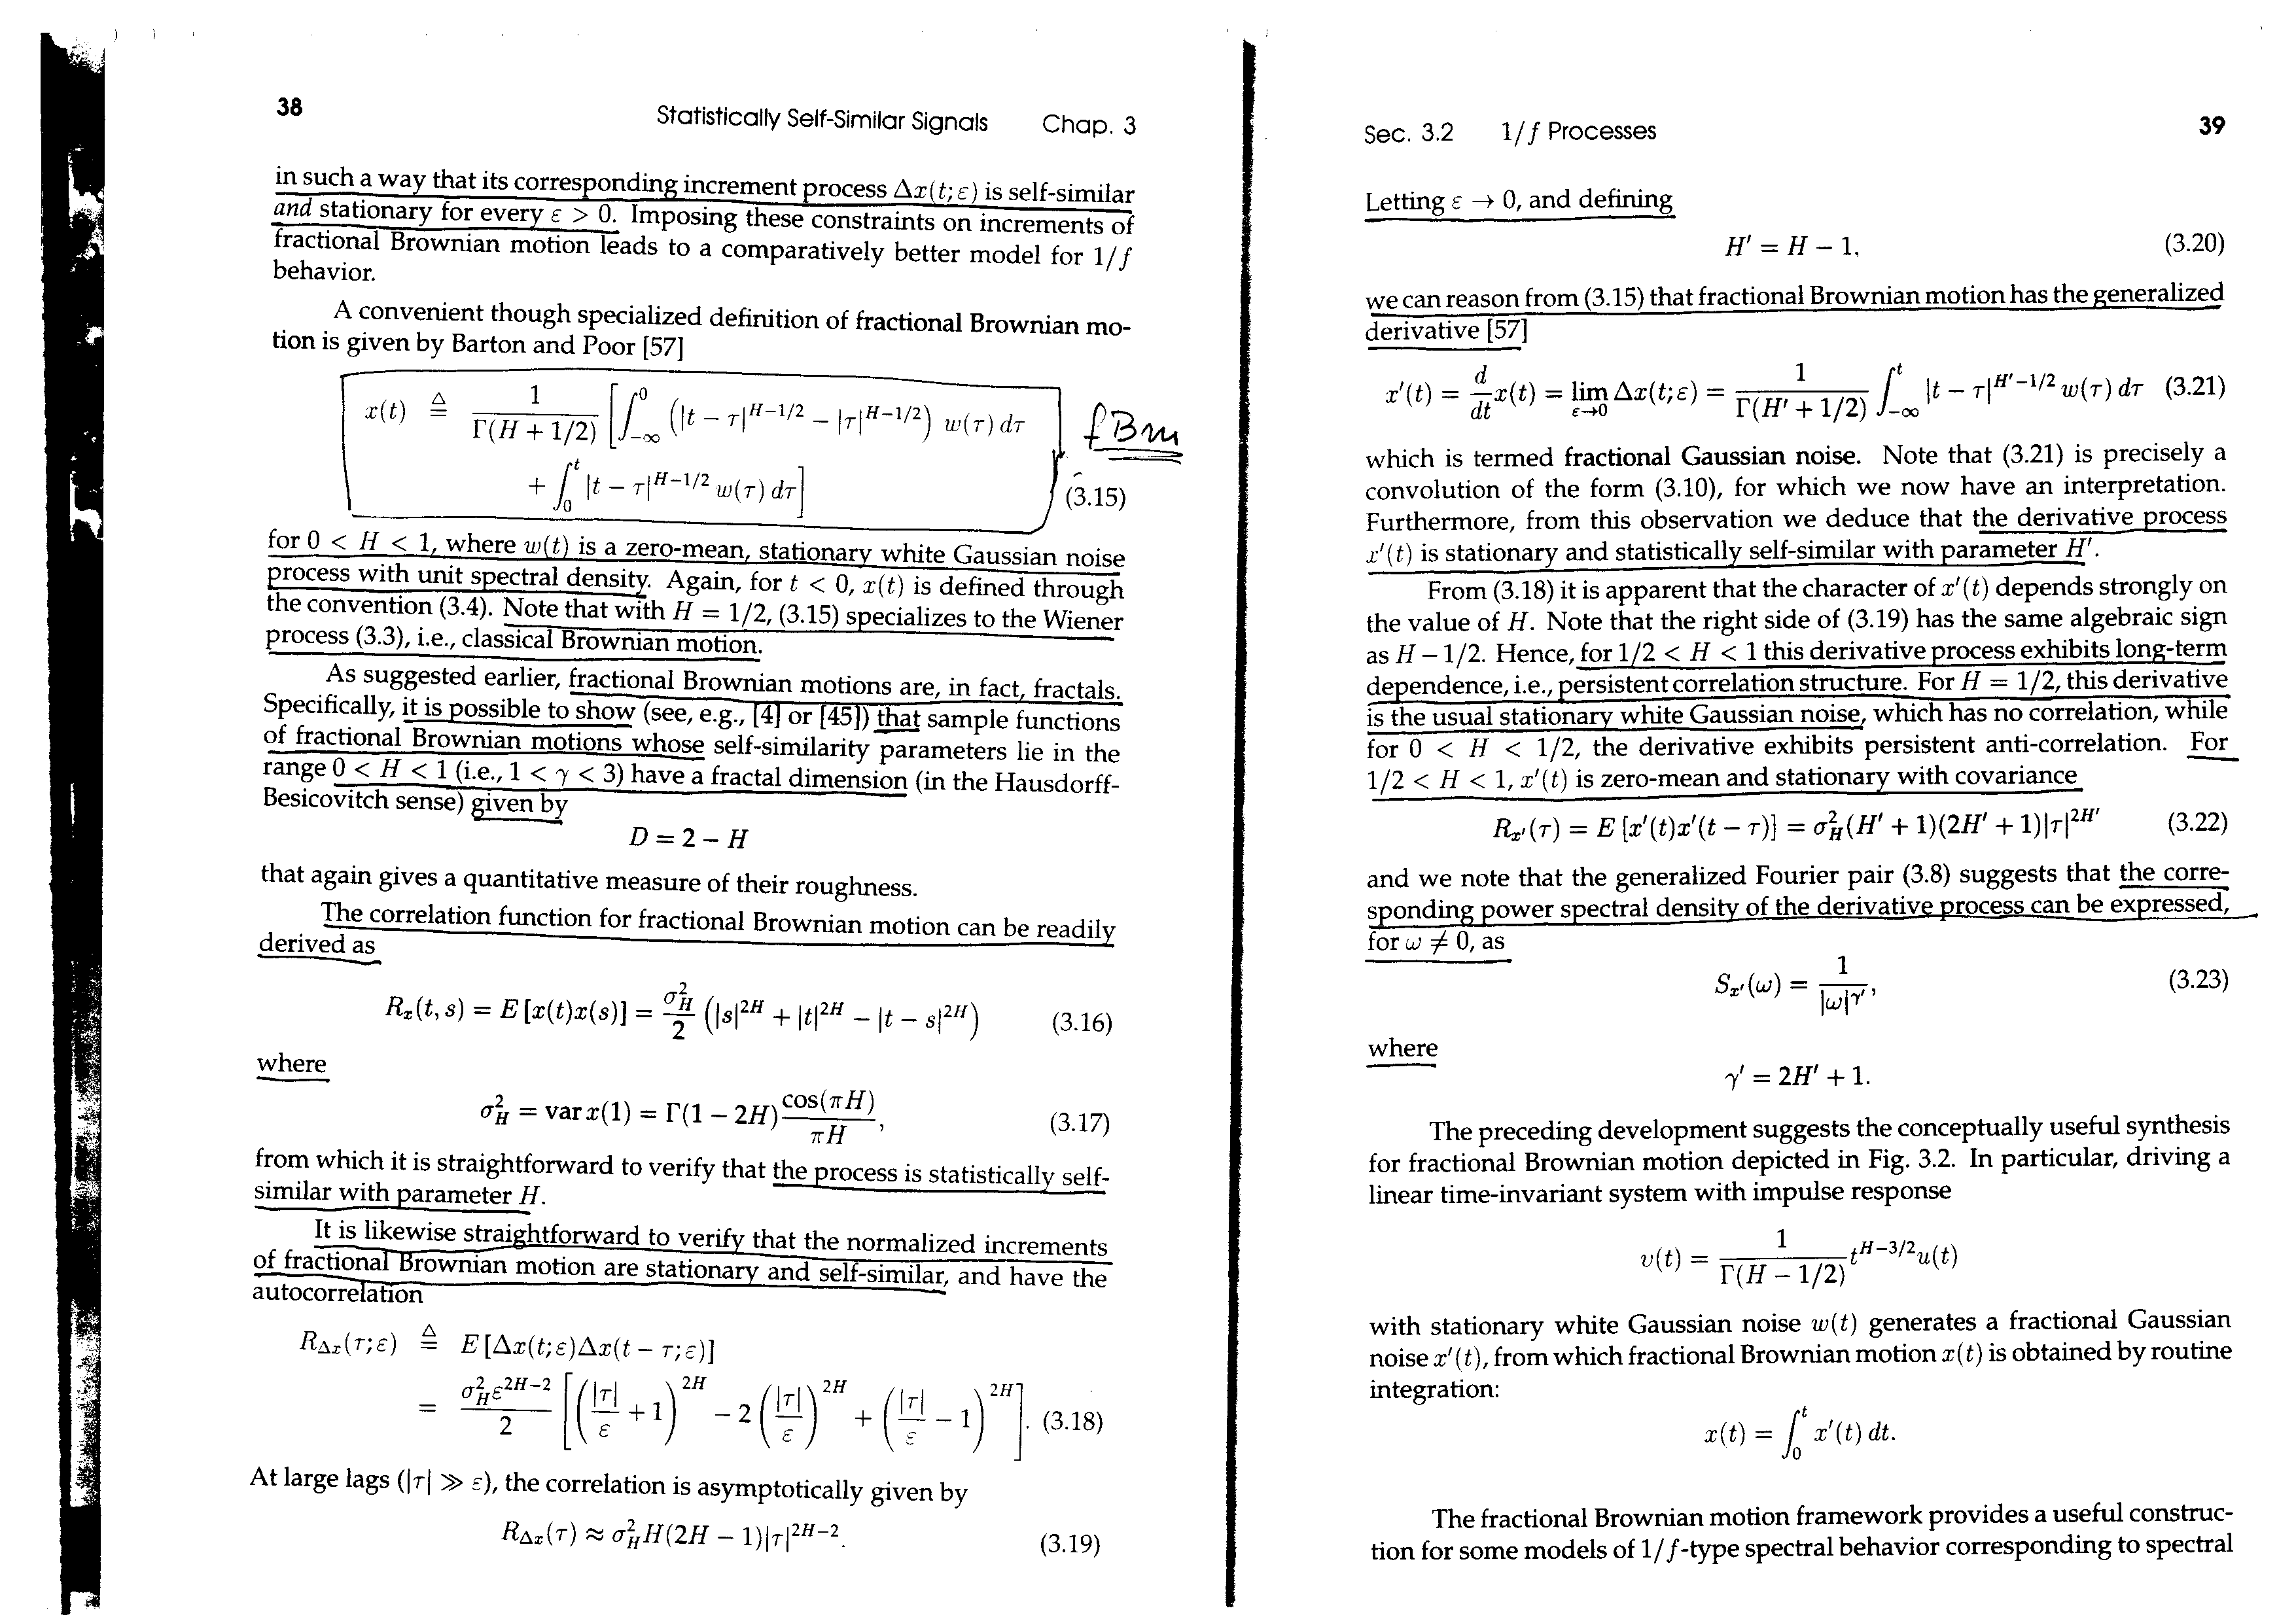 38
Statistically Self-Similar Signals Chap. 3
in such a way that its corresponding increment process Δx(t; ε) is self-similar
and stationary for every ε > 0. Imposing these constraints on increments of
fractional Brownian motion leads to a comparatively better model for 1/f
behavior.
A convenient though specialized definition of fractional Brownian mo-
tion is given by Barton and Poor [57]
x(t) ≜ 1/Γ(H + 1/2) [∫_{-∞}^0 (|t − τ|^{H−1/2} − |τ|^{H−1/2}) w(τ) dτ
fBm
+ ∫_0^t |t − τ|^{H−1/2} w(τ) dτ] (3.15)
for 0 < H < 1, where w(t) is a zero-mean, stationary white Gaussian noise
process with unit spectral density. Again, for t < 0, x(t) is defined through
the convention (3.4). Note that with H = 1/2, (3.15) specializes to the Wiener
process (3.3), i.e., classical Brownian motion.
As suggested earlier, fractional Brownian motions are, in fact, fractals.
Specifically, it is possible to show (see, e.g., [4] or [45]) that sample functions
of fractional Brownian motions whose self-similarity parameters lie in the
range 0 < H < 1 (i.e., 1 < γ < 3) have a fractal dimension (in the Hausdorff-
Besicovitch sense) given by
D = 2 − H
that again gives a quantitative measure of their roughness.
The correlation function for fractional Brownian motion can be readily
derived as
R_x(t, s) = E [x(t)x(s)] = σ_H^2/2 (|s|^{2H} + |t|^{2H} − |t − s|^{2H}) (3.16)
where
σ_H^2 = var x(1) = Γ(1 − 2H) cos(πH)/πH, (3.17)
from which it is straightforward to verify that the process is statistically self-
similar with parameter H.
It is likewise straightforward to verify that the normalized increments
of fractional Brownian motion are stationary and self-similar, and have the
autocorrelation
R_{Δx}(τ; ε) ≜ E [Δx(t; ε)Δx(t − τ; ε)]
= σ_H^2 ε^{2H−2}/2 [(|τ|/ε + 1)^{2H} − 2 (|τ|/ε)^{2H} + (|τ|/ε − 1)^{2H}]. (3.18)
At large lags (|τ| ≫ ε), the correlation is asymptotically given by
R_{Δx}(τ) ≈ σ_H^2 H(2H − 1)|τ|^{2H−2}. (3.19)
Sec. 3.2 1/f Processes 39
Letting ε → 0, and defining
H′ = H − 1, (3.20)
we can reason from (3.15) that fractional Brownian motion has the generalized
derivative [57]
x′(t) = d/dt x(t) = lim_{ε→0} Δx(t; ε) = 1/Γ(H′ + 1/2) ∫_{-∞}^t |t − τ|^{H′−1/2} w(τ) dτ (3.21)
which is termed fractional Gaussian noise. Note that (3.21) is precisely a
convolution of the form (3.10), for which we now have an interpretation.
Furthermore, from this observation we deduce that the derivative process
x′(t) is stationary and statistically self-similar with parameter H′.
From (3.18) it is apparent that the character of x′(t) depends strongly on
the value of H. Note that the right side of (3.19) has the same algebraic sign
as H − 1/2. Hence, for 1/2 < H < 1 this derivative process exhibits long-term
dependence, i.e., persistent correlation structure. For H = 1/2, this derivative
is the usual stationary white Gaussian noise, which has no correlation, while
for 0 < H < 1/2, the derivative exhibits persistent anti-correlation. For
1/2 < H < 1, x′(t) is zero-mean and stationary with covariance
R_{x′}(τ) = E [x′(t)x′(t − τ)] = σ_H^2 (H′ + 1)(2H′ + 1)|τ|^{2H′} (3.22)
and we note that the generalized Fourier pair (3.8) suggests that the corre-
sponding power spectral density of the derivative process can be expressed,
for ω ≠ 0, as
S_{x′}(ω) = 1/|ω|^{γ′}, (3.23)
where
γ′ = 2H′ + 1.
The preceding development suggests the conceptually useful synthesis
for fractional Brownian motion depicted in Fig. 3.2. In particular, driving a
linear time-invariant system with impulse response
υ(t) = 1/Γ(H − 1/2) t^{H−3/2} u(t)
with stationary white Gaussian noise w(t) generates a fractional Gaussian
noise x′(t), from which fractional Brownian motion x(t) is obtained by routine
integration:
x(t) = ∫_0^t x′(t) dt.
The fractional Brownian motion framework provides a useful construc-
tion for some models of 1/f-type spectral behavior corresponding to spectral